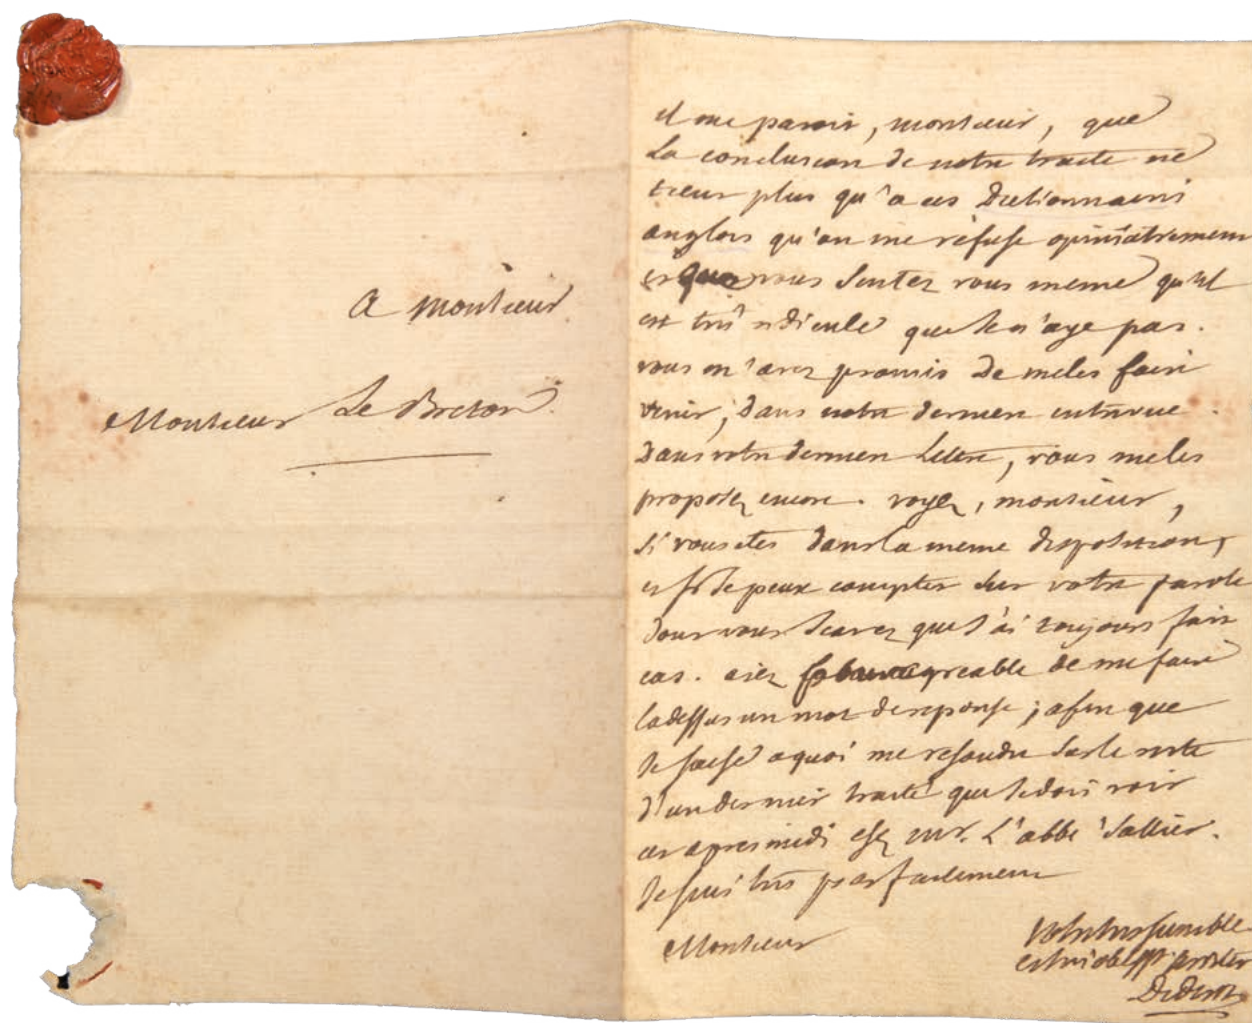 a Monsieur
Monsieur Le Breton.
il me paroit, monsieur, que
la conclusion de notre traité ne
tient plus qu'a ces Dictionnaires
anglois qu'on me refuse opiniatrement
et que vous sentez vous meme qu'il
est tres ridicule que je n'aye pas.
vous m'avez promis de me les faire
venir, dans notre derniere entrevue.
dans votre derniere Lettre, vous me les
proposez encore. voyez, monsieur,
si vous etes dans la meme disposition,
et si je peux compter sur votre parole
dont vous scavez que j'ai toujours fait
cas. aiez agreable de me faire
la dessus un mot de reponse ; afin que
je sache a quoi me resoudre sur le reste
d'un dernier traité que je dois voir
cet apres midi chez mr. L'abbé Sallier.
je suis tres parfaitement
Monsieur
Votre tres humble
et tres obeisst serviteur
Diderot